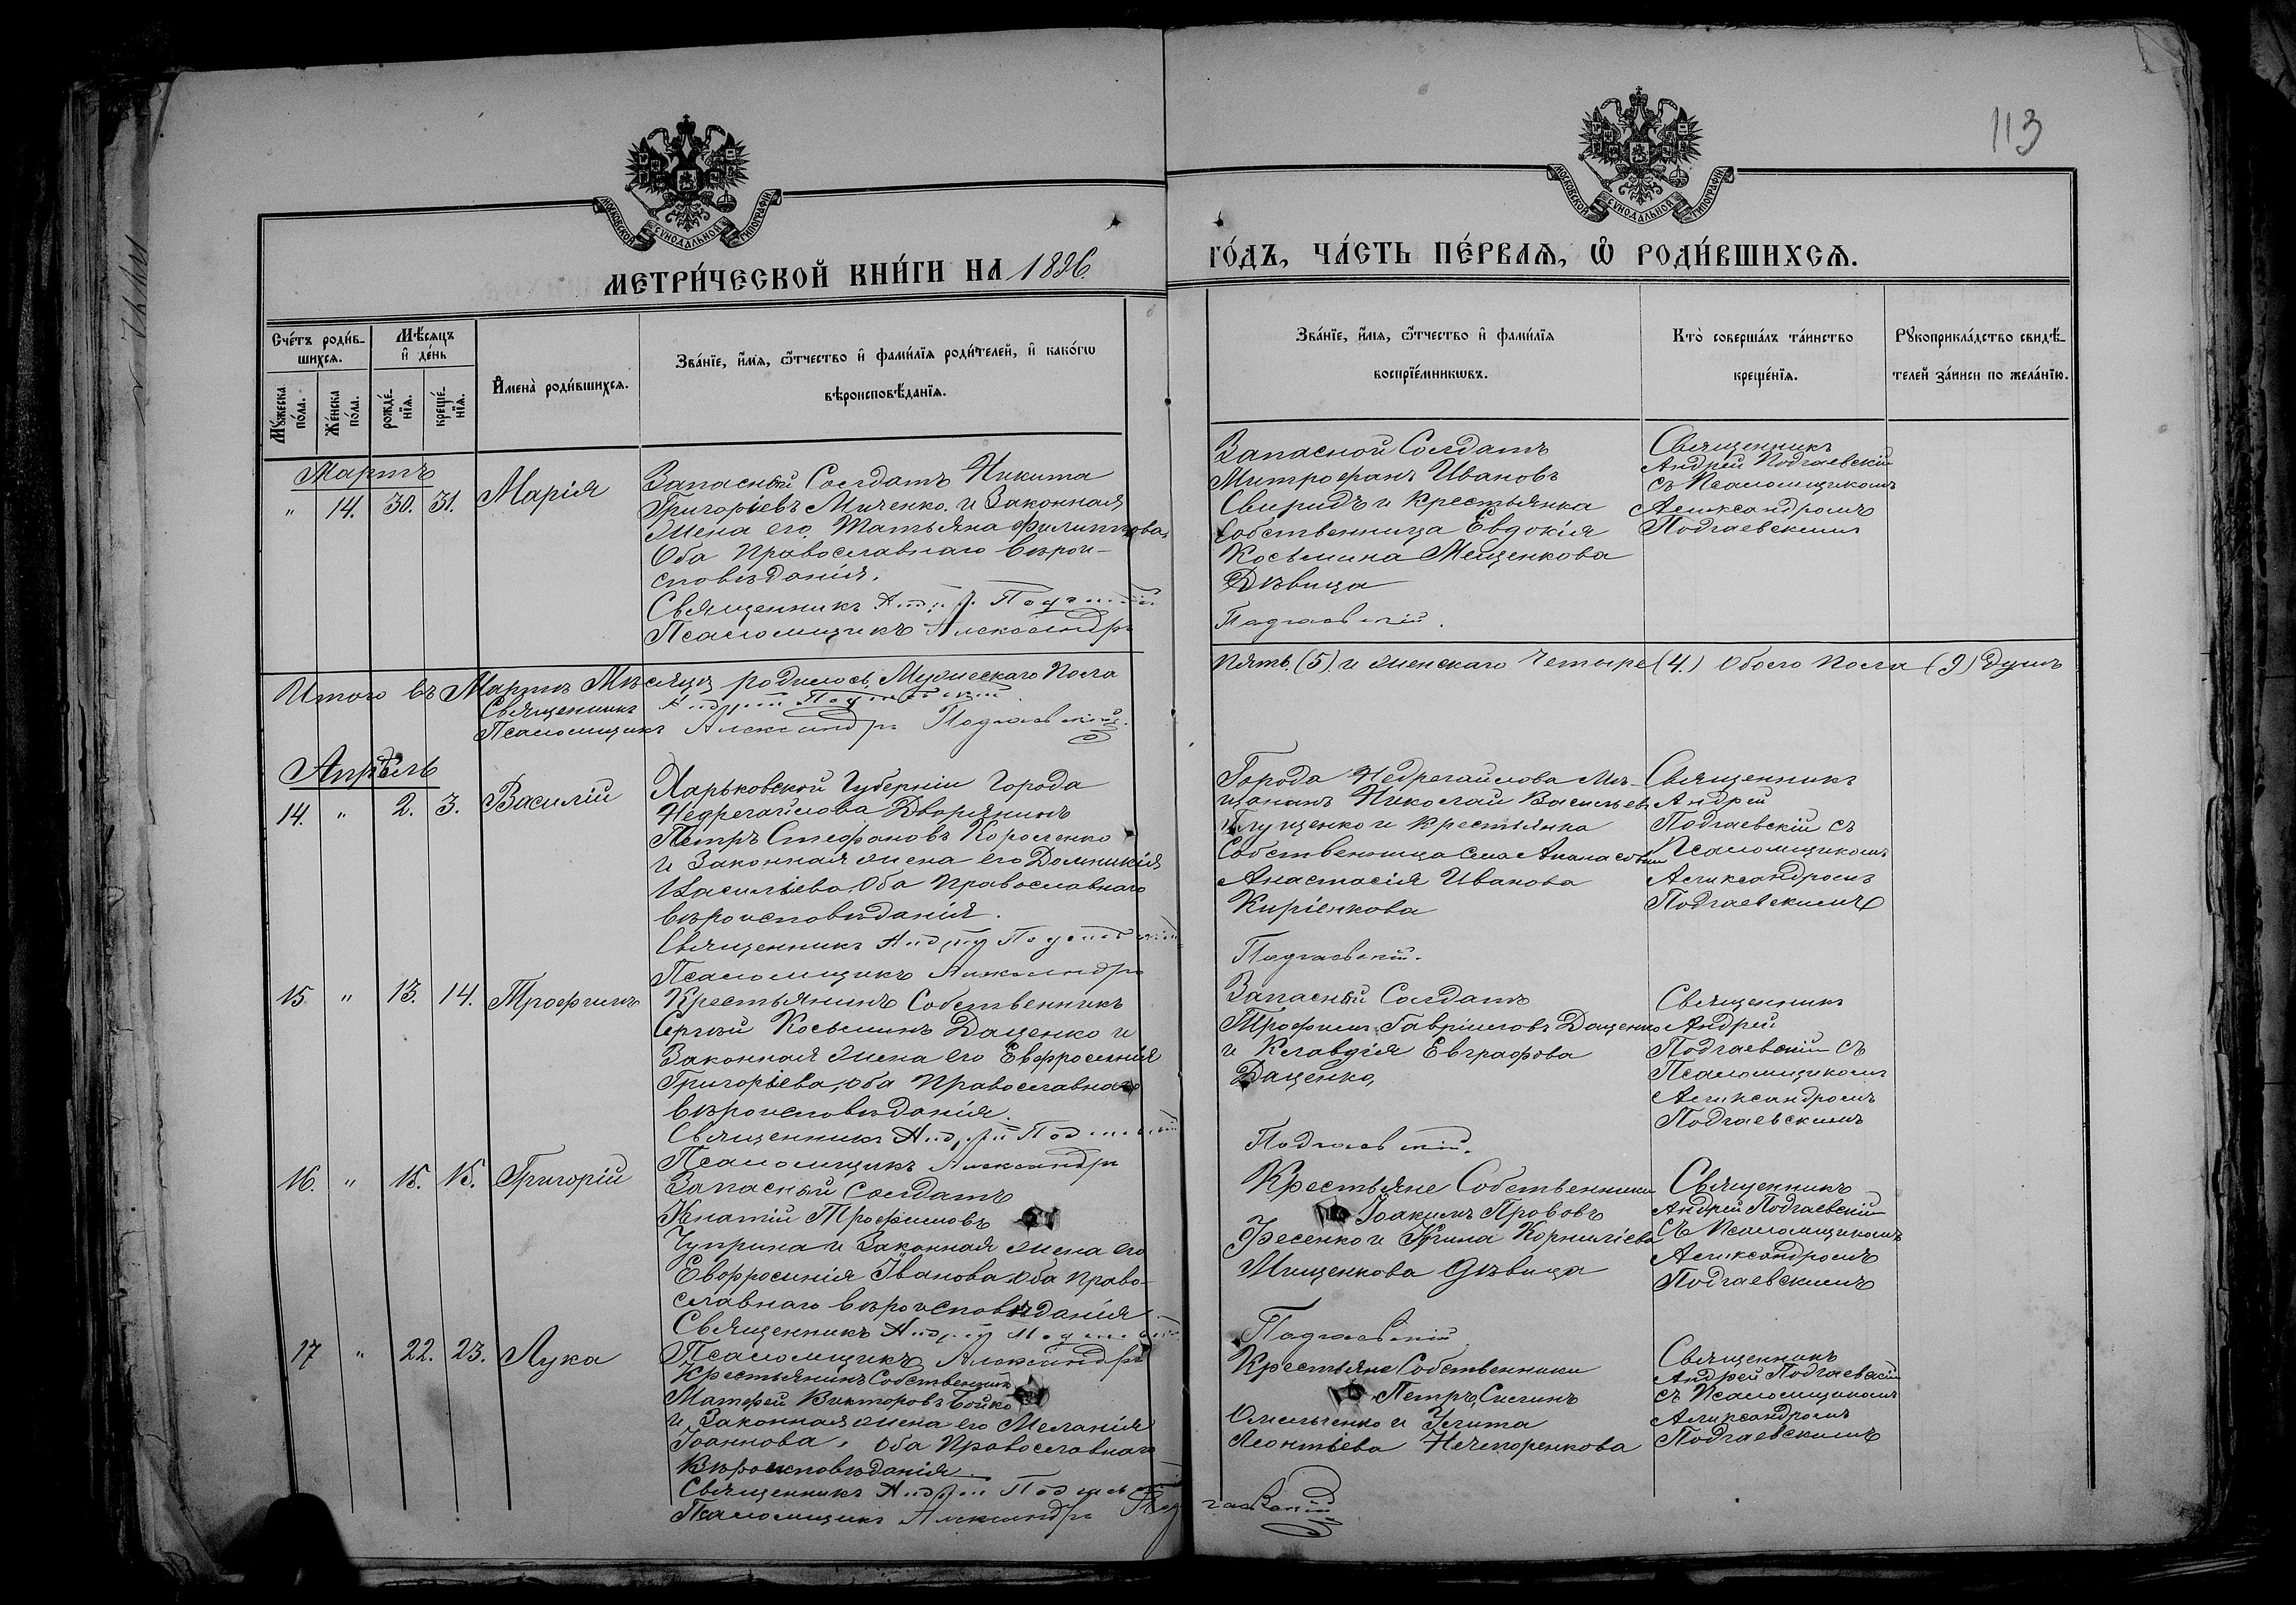 113
МОСКОВСКОЙ СѴНОДАЛЬНОЙ ТИПОГРАФІИ
МОСКОВСКОЙ СѴНОДАЛЬНОЙ ТИПОГРАФІИ
МЕТРИ́ЧЕСКОЙ КНИ́ГИ НА 1896
ГО́ДЪ, ЧА́СТЬ ПЕ́РВАѦ, Ѡ҆ РОДИ́ВШИХСѦ.
Сче́тъ роди́в-
шихсѧ.
Мꙋ́жеска
по́ла.
Же́нска
по́ла.
Мѣ́сѧцъ
и҆ де́нь
рожде́-
нїѧ.
креще́-
нїѧ.
И҆мена̀ роди́вшихсѧ.
Зва́нїе, и҆́мѧ, ѻ҆́тчество и҆ фами́лїѧ роди́телей, и҆ како́гѡ
вѣроисповѣ́данїѧ.
Зва́нїе, и҆́мѧ, ѻ҆́тчество и҆ фами́лїѧ
воспрїе́мникѡвъ.
Кто̀ соверша́лъ та́инство
креще́нїѧ.
Рꙋкоприкла́дство свидѣ́-
телей за́писи по жела́нїю.
Мартъ
" 14. 30. 31. Марія
Запасный Солдатъ Никита
Григоріевъ Миченко и Законная
Жена его Татьяна Филиппова,
Оба Православнаго Вѣрои-
сповѣданія.
Священникъ Андрей Подгаевскій
Псаломщикъ Александръ
Запасной Солдатъ
Митрофанъ Ивановъ
Свиридъ и Крестьянка
Собственница Евдокія
Косьмина Мещенкова
Дѣвица
Подгаевскій.
Священникъ
Андрей Подгаевскій
съ Псаломщикомъ
Александромъ
Подгаевскимъ
Итого въ Мартѣ Мѣсяцѣ родилось Мужескаго Пола
Пять (5) и женскаго Четыре (4.) Обоего Пола (9) Душъ
Священникъ Андрей Подгаевскій
Псаломщикъ Александръ Подгаевскій.
Апрѣль
14. " 2. 3. Василій
Харьковской Губерніи Города
Недрегайлова Дворянинъ
Петръ Стефановъ Короченко
и Законная жена его Домникія
Васильева, Оба Православнаго
вѣроисповѣданія.
Священникъ Андрей Подгаевскій
Псаломщикъ Александръ
Города Недрегайлова Мѣ-
щанинъ Николай Васильевъ
Глущенко и крестьянка
Собственница села
Анастасія Иванова
Киріенкова
Подгаевскій.
Священникъ
Андрей
Подгаевскій съ
Псаломщикомъ
Александромъ
Подгаевскимъ
15. " 13. 14. Трофимъ
Крестьянинъ Собственникъ
Сергѣй Косьминъ Даценко и
Законная жена его Евфросинія
Григорьева, оба Православнаго
вѣроисповѣданія.
Священникъ Андрей Подгаевскій
Псаломщикъ Александръ
Запасный Солдатъ
Трофимъ Гавріиловъ Даценко
и Клавдія Евграфова
Даценко,
Подгаевскій.
Священникъ
Андрей
Подгаевскій съ
Псаломщикомъ
Александромъ
Подгаевскимъ
16. " 15. 15. Григорій
Запасный солдатъ
Игнатій Трофимовъ
Чуприна и Законная жена его
Евфросинія Іванова, оба право-
славнаго вѣроисповѣданія
Священникъ Андрей Подгаевскій
Псаломщикъ Александръ
Крестьяне Собственники
Іоакимъ Прововъ
Фесенко и Ирина Корниліева
Мищенкова дѣвица
Подгаевскій
Священникъ
Андрей Подгаевскій
съ Псаломщикомъ
Александромъ
Подгаевскимъ
17 " 22. 23. Лука
Крестьянинъ Собственникъ
Матфей Викторовъ Бойко
и Законная жена его Меланія
Іоаннова, Оба Православнаго
Вѣроисповѣданія.
Священникъ Андрей Подгаевскій
Псаломщикъ Александръ Подгаевскій
Крестьяне Собственники
Петръ
Омельченко и Улита
Леонтіева Нечипоренкова
Священникъ
Андрей Подгаевскій
съ Псаломщикомъ
Александромъ
Подгаевскимъ